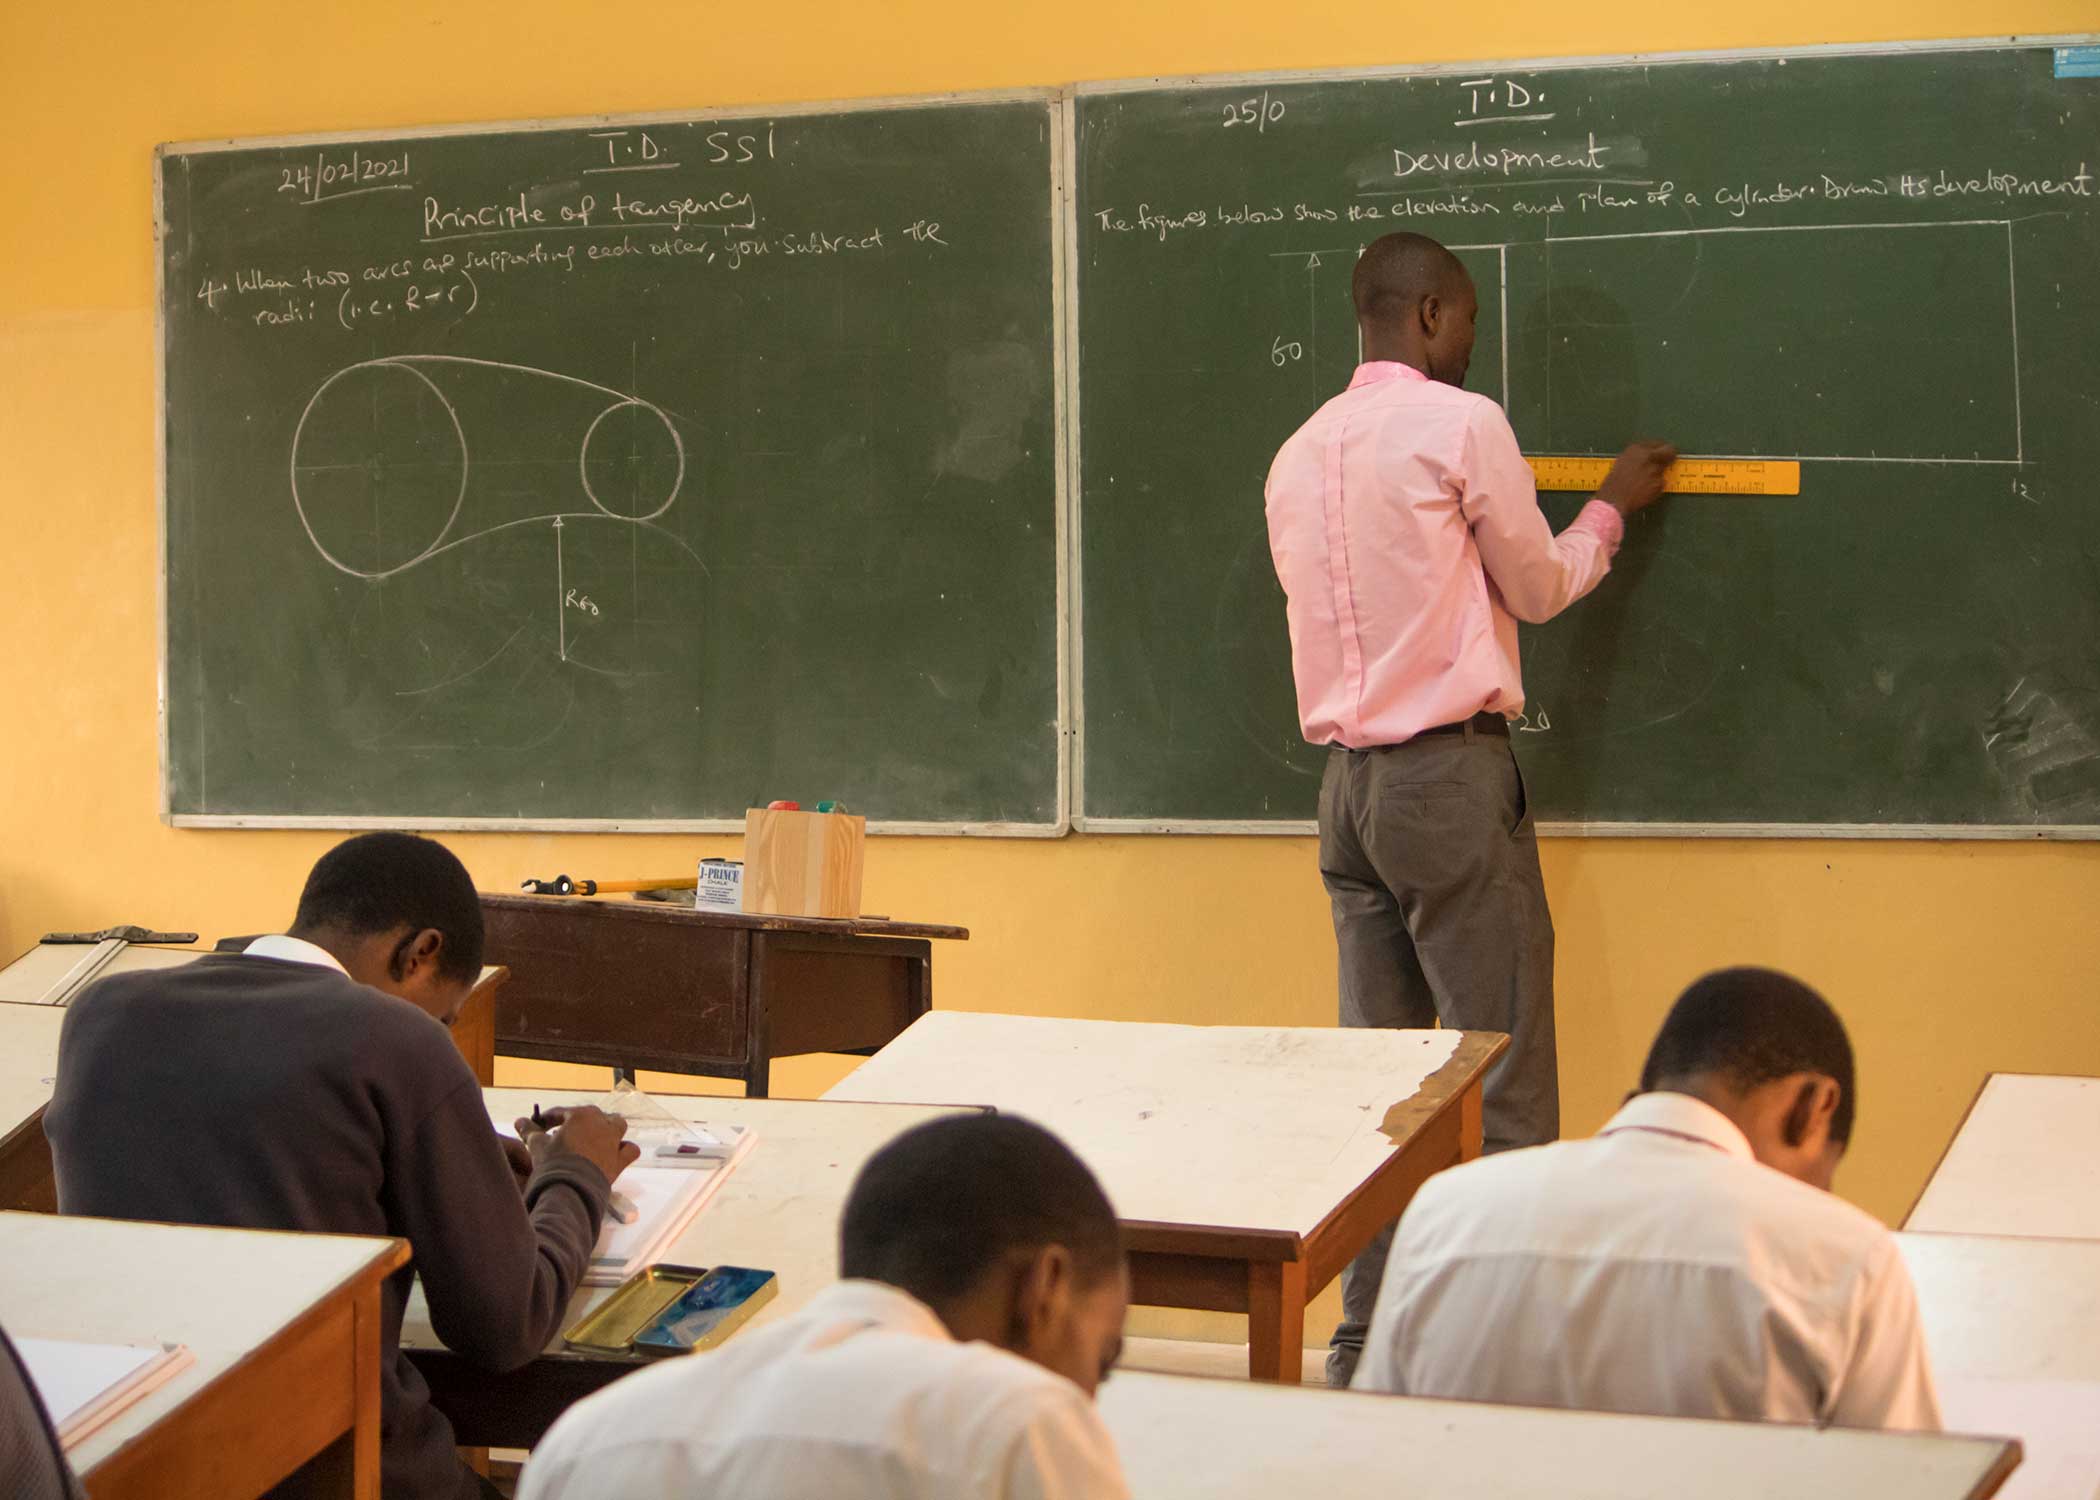 24/02/2021
T.D. SS1
Principle of tangency
4. When two arcs are supporting each other, you subtract the
radii (i.e. R-r)
R60
25/0
T.D.
Development
The figures below show the elevation and plan of a cylinder. Draw its development
60
12
20
J-PRINCE
CHALK